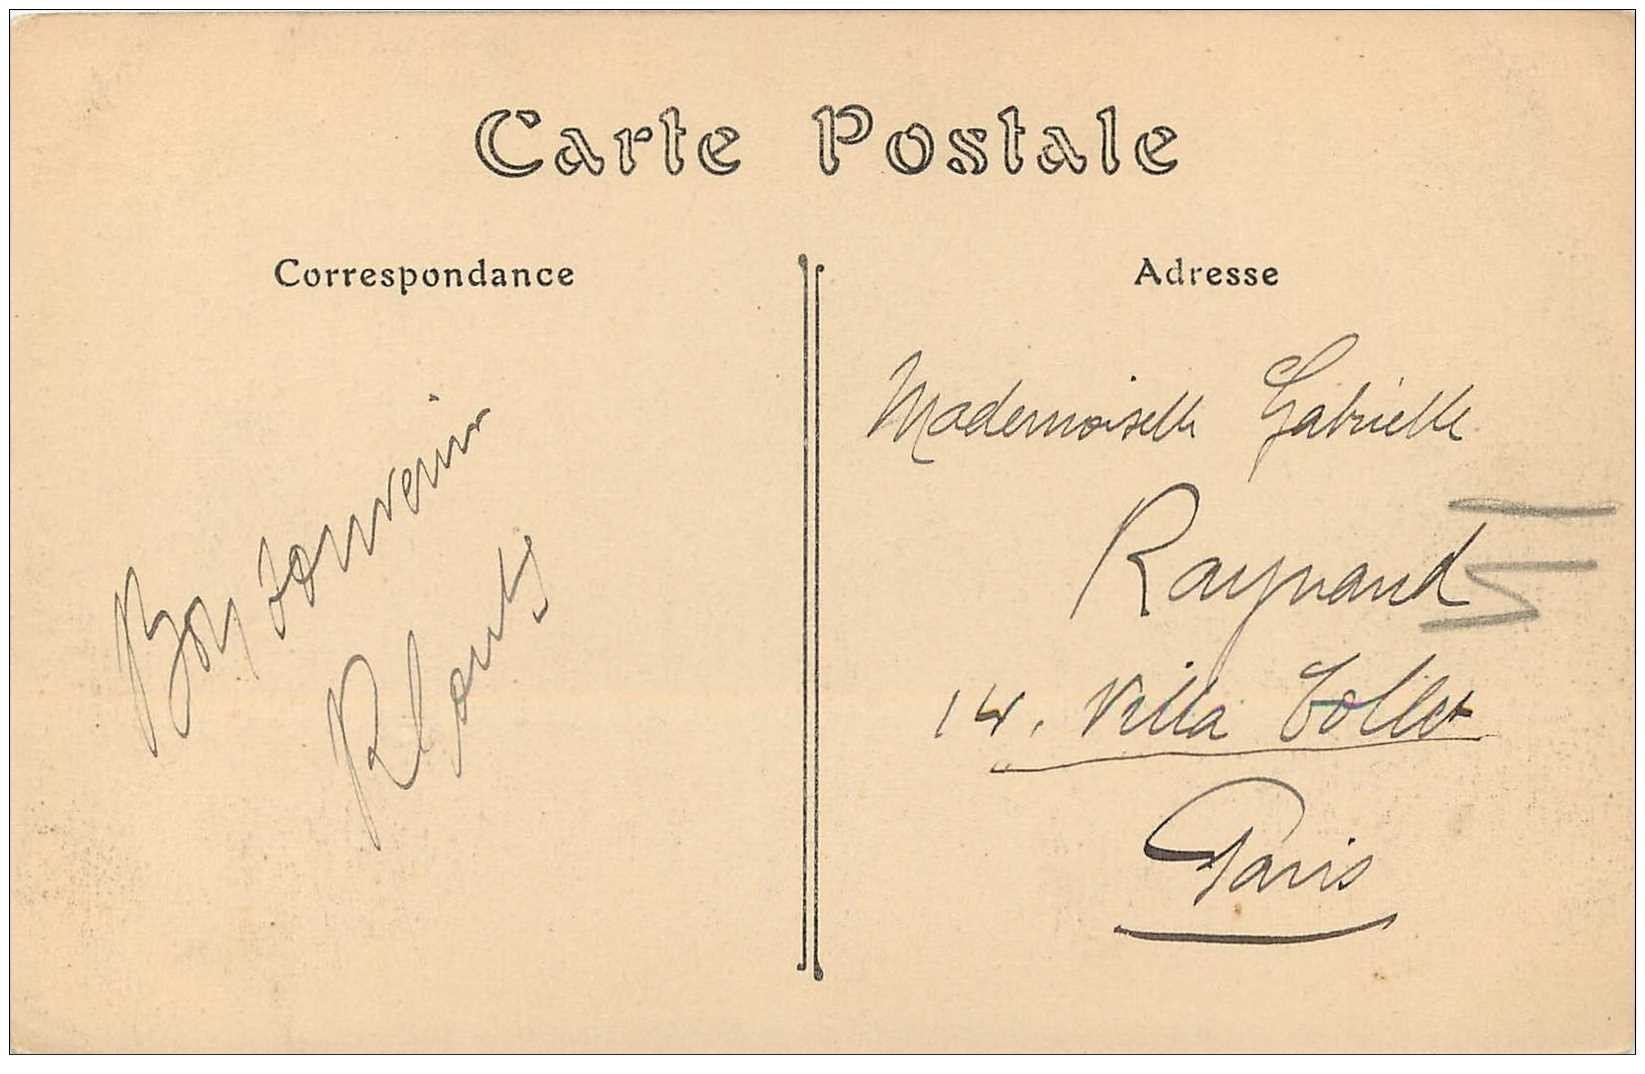 Carte Postale
Correspondance
Adresse
Bon souvenir
Mademoiselle Gabrielle
Raynaud
14, Villa Collet
Paris